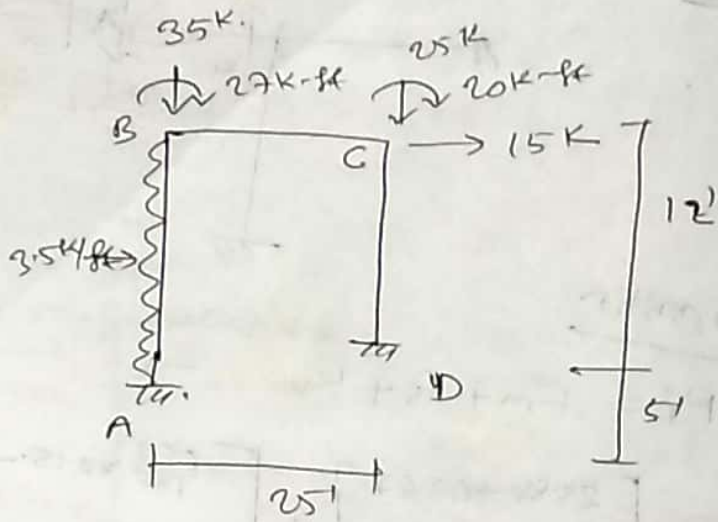 35K.
25K
27K-ft
20K-ft
B
C
15K
12'
3.5K/ft
D
5'
A
25'